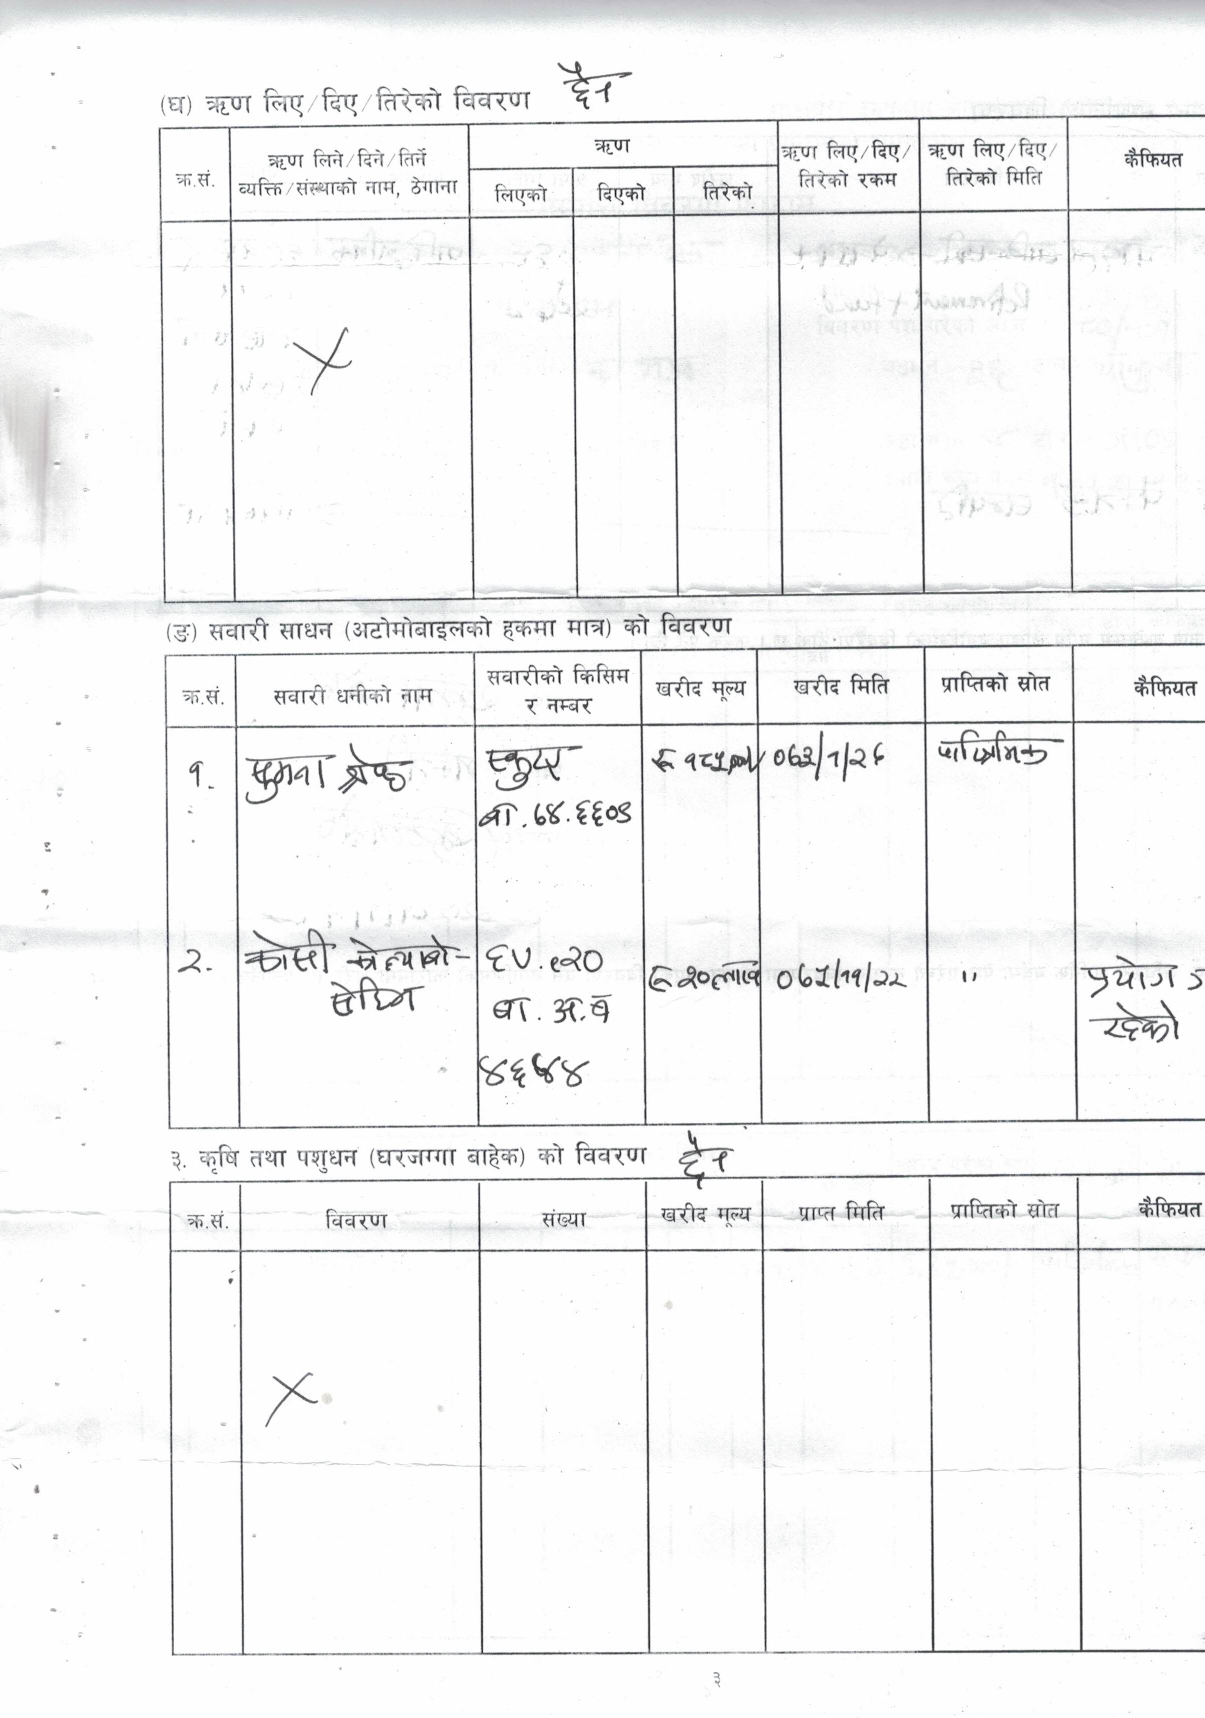 (घ) ऋण लिए/दिए/तिरेको विवरण छैन
क्र.सं.
ऋण लिने/दिने/तिर्ने
व्यक्ति/संस्थाको नाम, ठेगाना
ऋण
लिएको दिएको तिरेको
ऋण लिए/दिए/
तिरेको रकम
ऋण लिए/दिए/
तिरेको मिति
कैफियत
(ङ) सवारी साधन (अटोमोबाइलको हकमा मात्र) को विवरण
क्र.सं.
सवारी धनीको नाम
सवारीको किसिम
र नम्बर
खरीद मूल्य
खरीद मिति
प्राप्तिको स्रोत
कैफियत
१. श्रेष्ठ
स्कुटर
बा.
पारिश्रमिक
२. कोसी
बा. अ.
रू २० लाख
"
प्रयोग
रहेको
३. कृषि तथा पशुधन (घरजग्गा बाहेक) को विवरण छैन
क्र.सं. विवरण संख्या खरीद मूल्य प्राप्त मिति प्राप्तिको स्रोत कैफियत
३